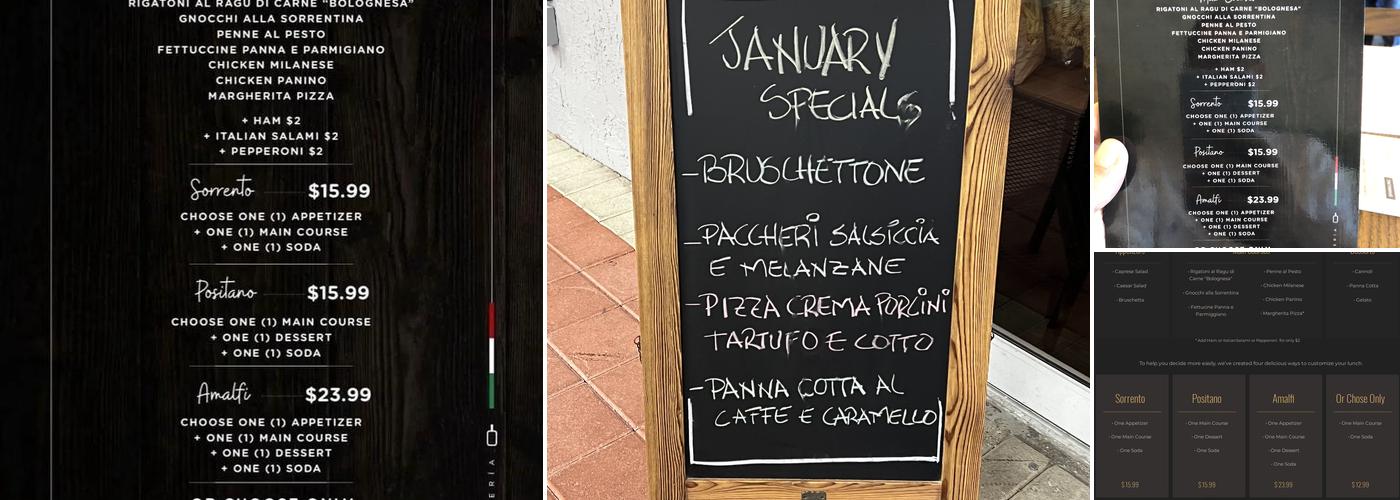 RIGATONI AL RAGU DI CARNE "BOLOGNESA"
GNOCCHI ALLA SORRENTINA
PENNE AL PESTO
FETTUCCINE PANNA E PARMIGIANO
CHICKEN MILANESE
CHICKEN PANINO
MARGHERITA PIZZA
+ HAM $2
+ ITALIAN SALAMI $2
+ PEPPERONI $2
Sorrento $15.99
CHOOSE ONE (1) APPETIZER
+ ONE (1) MAIN COURSE
+ ONE (1) SODA
Positano $15.99
CHOOSE ONE (1) MAIN COURSE
+ ONE (1) DESSERT
+ ONE (1) SODA
Amalfi $23.99
CHOOSE ONE (1) APPETIZER
+ ONE (1) MAIN COURSE
+ ONE (1) DESSERT
+ ONE (1) SODA
OR CHOOSE ONLY
JANUARY
SPECIALS
-BRUSCHETTONE
-PACCHERI SALSICCIA
E MELANZANE
-PIZZA CREMA PORCINI
TARTUFO E COTTO
-PANNA COTTA AL
CAFFE E CARAMELLO
RIGATONI AL RAGU DI CARNE "BOLOGNESA"
GNOCCHI ALLA SORRENTINA
PENNE AL PESTO
FETTUCCINE PANNA E PARMIGIANO
CHICKEN MILANESE
CHICKEN PANINO
MARGHERITA PIZZA
+ HAM $2
+ ITALIAN SALAMI $2
+ PEPPERONI $2
Sorrento $15.99
CHOOSE ONE (1) APPETIZER
+ ONE (1) MAIN COURSE
+ ONE (1) SODA
Positano $15.99
CHOOSE ONE (1) MAIN COURSE
+ ONE (1) DESSERT
+ ONE (1) SODA
Amalfi $23.99
CHOOSE ONE (1) APPETIZER
+ ONE (1) MAIN COURSE
+ ONE (1) DESSERT
+ ONE (1) SODA
- Caprese Salad
- Caesar Salad
- Bruschetta
- Rigatoni al Ragu di
Carne "Bolognesa"
- Gnocchi alla Sorrentina
- Fettucine Panna e
Parmiggiano
- Penne al Pesto
- Chicken Milanese
- Chicken Panino
- Margherita Pizza*
- Cannoli
- Panna Cotta
- Gelato
* Add Ham or Italian Salami or Pepperoni for only $2
To help you decide more easily, we've created four delicious ways to customize your lunch.
Sorrento
- One Appetizer
- One Main Course
- One Soda
$15.99
Positano
- One Main Course
- One Dessert
- One Soda
$15.99
Amalfi
- One Appetizer
- One Main Course
- One Dessert
- One Soda
$23.99
Or Chose Only
- One Main Course
- One Soda
$12.99